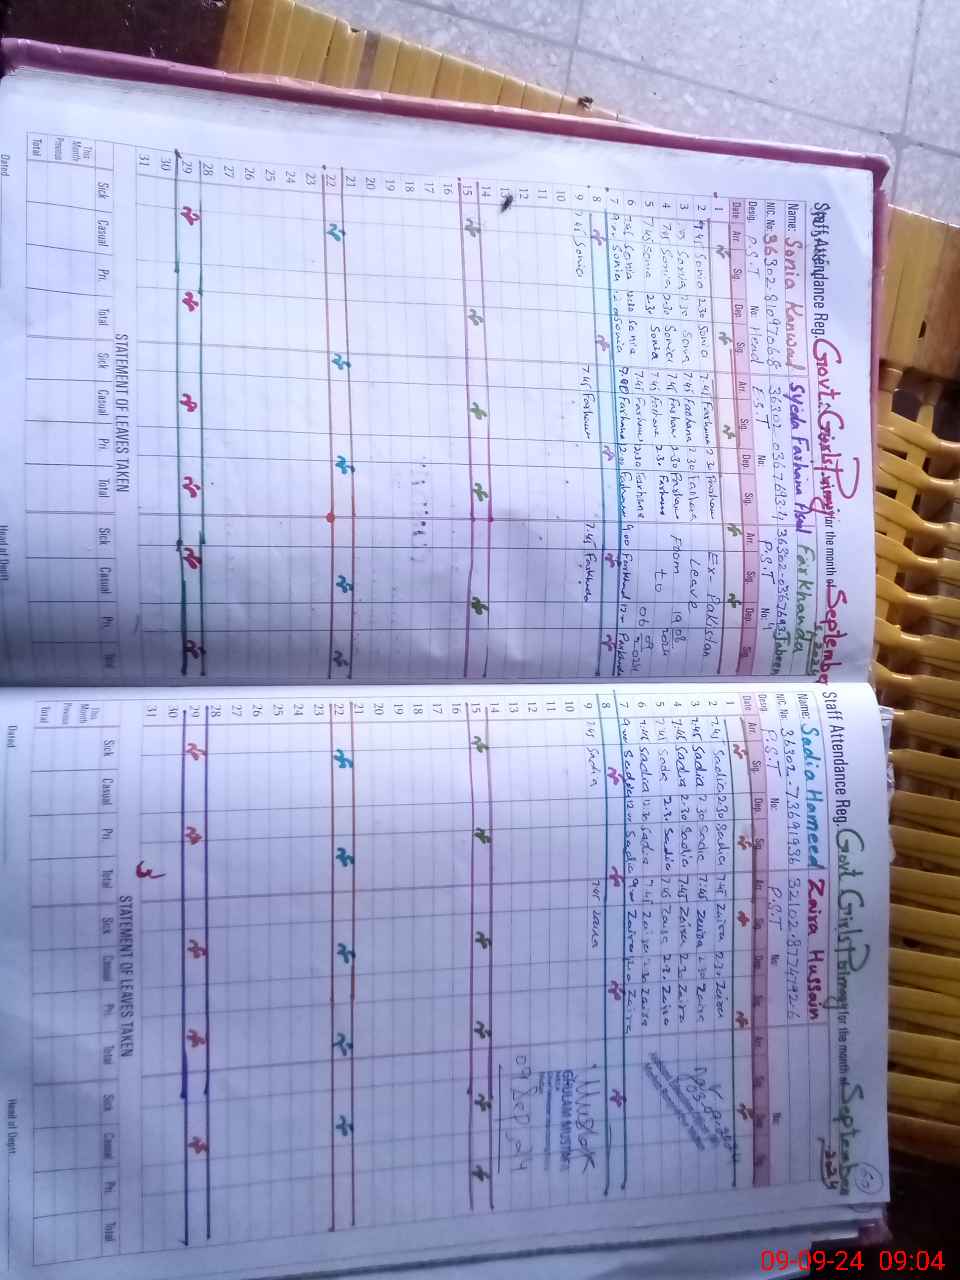 Staff Attendance Reg. Govt. Girls Primary for the month of September 2024
Name: Sonia Kanwal Syeda Farhana Farkhanda Jabeen
NIC. No: 36302-8109706-8
Desig. P.S.T No: Head E.S.T No: P.S.T No:
Date Arr. Sig. Dep. Sig. Arr. Sig. Dep. Sig. Arr. Sig. Dep. Sig.
1
2 7.45 Sonia 2.30 Sonia 7.45 Farhana 2.30 Farhana Ex-Pakistan
3 7.45 Sonia 2.30 Sonia 7.45 Farhana 2.30 Farhana Leave
4 7.45 Sonia 2.30 Sonia 7.45 Farhana 2.30 Farhana From 19 08 2024
5 7.45 Sonia 2.30 Sonia 7.45 Farhana 2.30 Farhana to
6 7.45 Sonia 12.30 Sonia 7.45 Farhana 12.30 Farhana 06 09 2024
7 9.00 Sonia 12.00 Sonia 9.00 Farhana 12.00 Farhana 9.00 Farkhand Farkhanda
8
9 7.45 Sonia 7.45 Farhana 7.45 Farkhanda
10
11
12
13
14
15
16
17
18
19
20
21
22
23
24
25
26
27
28
29
30
31
STATEMENT OF LEAVES TAKEN
Sick Casual Pri. Total Sick Casual Pri. Total Sick Casual Pri. Total
This Month
Previous
Total
Dated Head of Deptt
Staff Attendance Reg. Govt Girls Primary for the month of September 2024
Name: Sadia Hameed Zaira Hussain
NIC. No: 36302-7369193-6 32102-8774792-6
Desig. P.S.T No: P.S.T No: No:
Date Arr. Sig. Dep. Sig. Arr. Sig. Dep. Sig. Arr. Sig. Dep. Sig.
1
2 7.45 Sadia 2.30 Sadia 7.45 Zaira 2.30 Zaira
3 7.45 Sadia 2.30 Sadia 7.45 Zaira 2.30 Zaira
4 7.45 Sadia 2.30 Sadia 7.45 Zaira 2.30 Zaira
5 7.45 Sadia 2.30 Sadia 7.45 Zaira 2.30 Zaira
6 7.45 Sadia 12.30 Sadia 7.45 Zaira 12.30 Zaira
7 9.00 Sadia 12.00 Sadia 9.00 Zaira 12.00 Zaira
8
9 7.45 Sadia 7.45 Zaira
10
11
12
13
14
15
16
17
18
19
20
21
22
23
24
25
26
27
28
29
30
31
GHULAM MUSTAFA
09 Sep, 24
STATEMENT OF LEAVES TAKEN
Sick Casual Pri. Total Sick Casual Pri. Total Sick Casual Pri. Total
This Month
Previous
Total
Dated Head of Deptt:
09-09-24 09:04